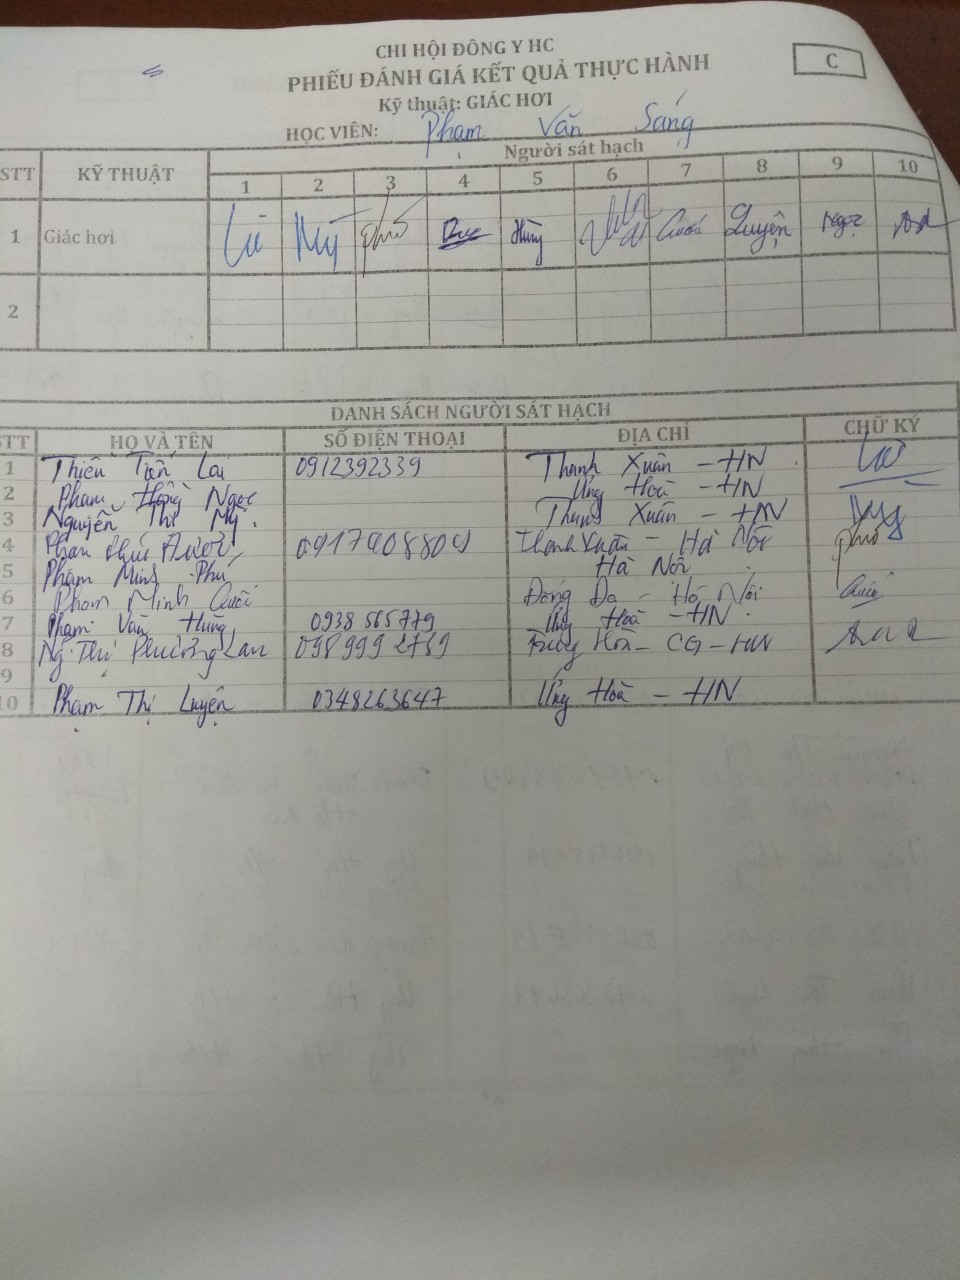 CHI HỘI ĐÔNG Y HC
C
PHIẾU ĐÁNH GIÁ KẾT QUẢ THỰC HÀNH
Kỹ thuật: GIÁC HƠI
HỌC VIÊN: Phạm Văn Sáng
STT KỸ THUẬT Người sát hạch
1 2 3 4 5 6 7 8 9 10
1 Giác hơi Mỹ Phú Hùng Cưới Luyện Ngọc
2
DANH SÁCH NGƯỜI SÁT HẠCH
STT HỌ VÀ TÊN SỐ ĐIỆN THOẠI ĐỊA CHỈ CHỮ KÝ
1 Tiến Lai 0912392339 Thanh Xuân - HN
2 Phạm Hồng Ngọc Ứng Hoà - HN
3 Nguyễn Thị Mỹ Thanh Xuân - HN
4 Phan 0917908809 Thanh Xuân - Hà Nội Phú
5 Phạm Minh Phú Hà Nội
6 Phạm Minh Cưới Đống Đa - Hà Nội Cưới
7 Phạm Văn Hùng 0938565779 Ứng Hoà - HN
8 Ng. Thị Phương Lan 098999 2789 Trung Hòa - CG - HN
9
10 Phạm Thị Luyện 0348263647 Ứng Hoà - HN